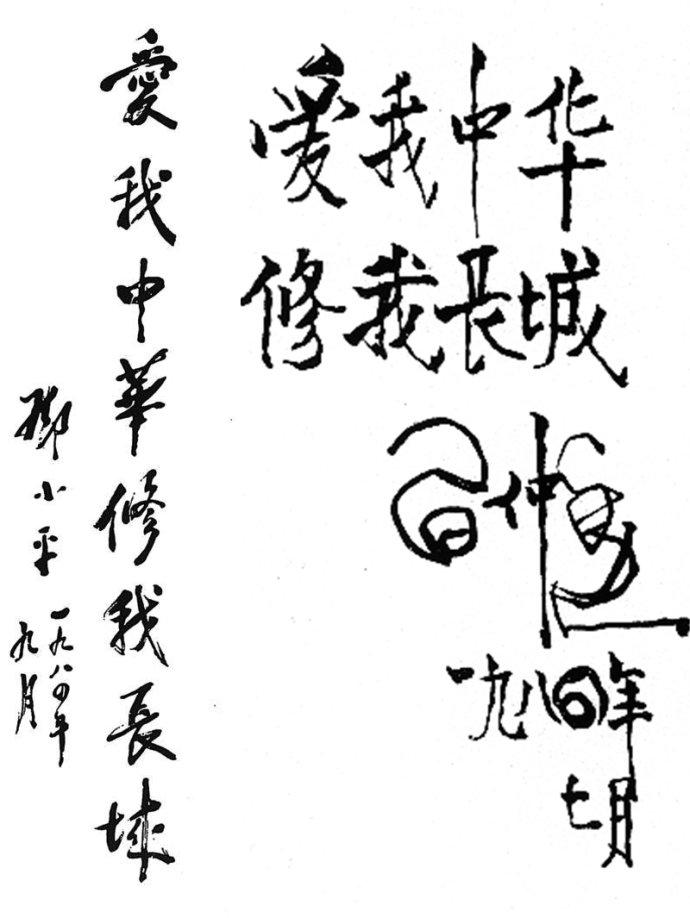 愛我中華修我長城
鄧小平
一九八四年
九月
爱我中华
修我長城
習仲勋
一九八四年
七月